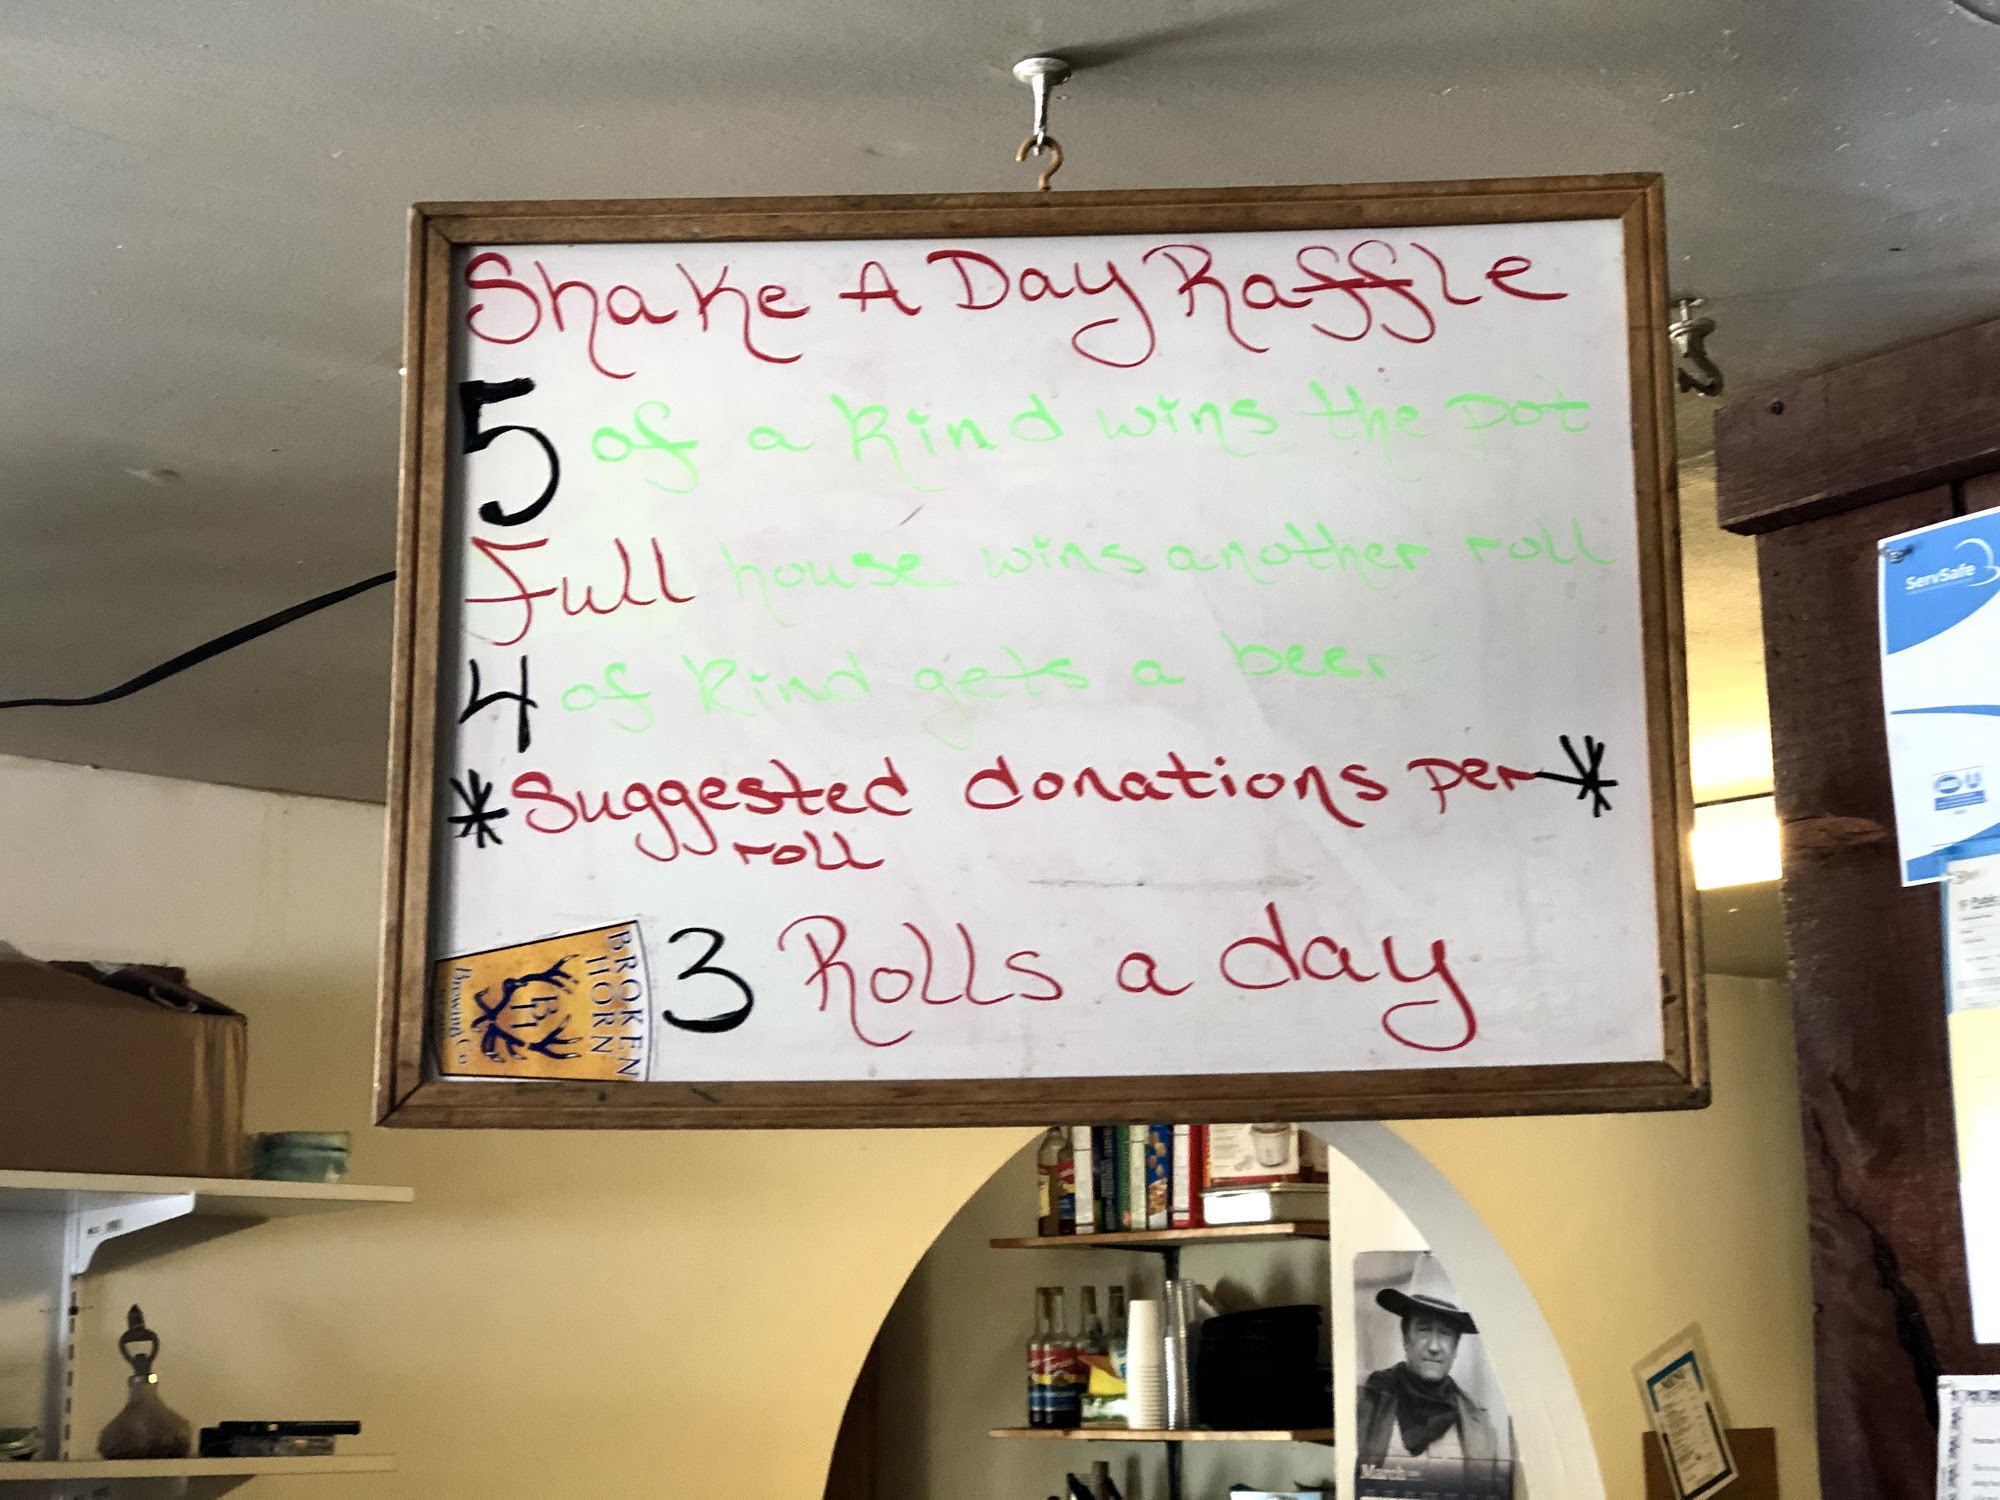 Shake A Day Raffle
5 of a kind wins the pot
Full house wins another roll
4 of kind gets a beer
*Suggested donations per*
roll
3 Rolls a day
BROKEN
HORN
BH
Brewing Co
ServSafe
MENU
March